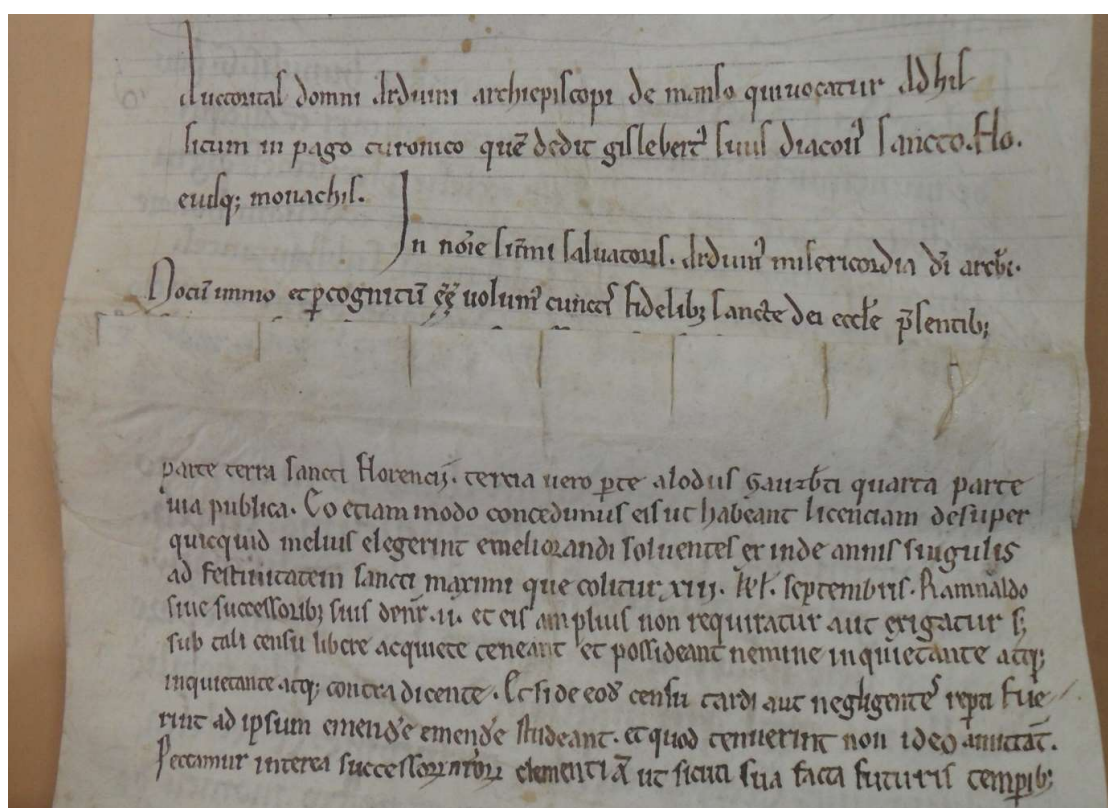 Auctoritas domni Arduini archiepiscopi de manso qui vocatur Adhil
licum in pago turonico quē dedit gislebert᾽ suus diacon᾽ sancto. Flo.
eiusq; monachis.
In noīe sūmi salvatoris. Arduin᾽ misericordia dī archi.
Notū immo et pcognitū eē volum᾽ cunctis fidelib; sanctę dei eccłe p̄sentib;
parte terra sancti Florencij. tercia uero ꝑte alodus quarta parte
uia publica. Eo etiam modo concedimus eis ut habeant licenciam desuper
quicquid melius elegerint emeliorandi soluentes ex inde annis singulis
ad festiuitatem sancti maximi que colitur xiij. kł. septembris. Rainaldo
siue successorib; suis . ii. et eis amplius non requiratur aut exigatur s;
sub tali censu libere acquiete teneant et possideant nemine inquietante atq;
inquietante atq; contradicente. Et si de eod̄ censu tardi aut negligentes repti fue
rint ad ipsum emende emende studeant. et quod tenuerint non ideo amittāt.
Peccamur interea successorꝝ nrōrꝝ clementiā ut sicuti sua facta futuris tempib;